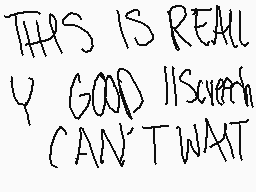 THIS IS REALL
Y GOOD !!Screech
CAN'T WAIT